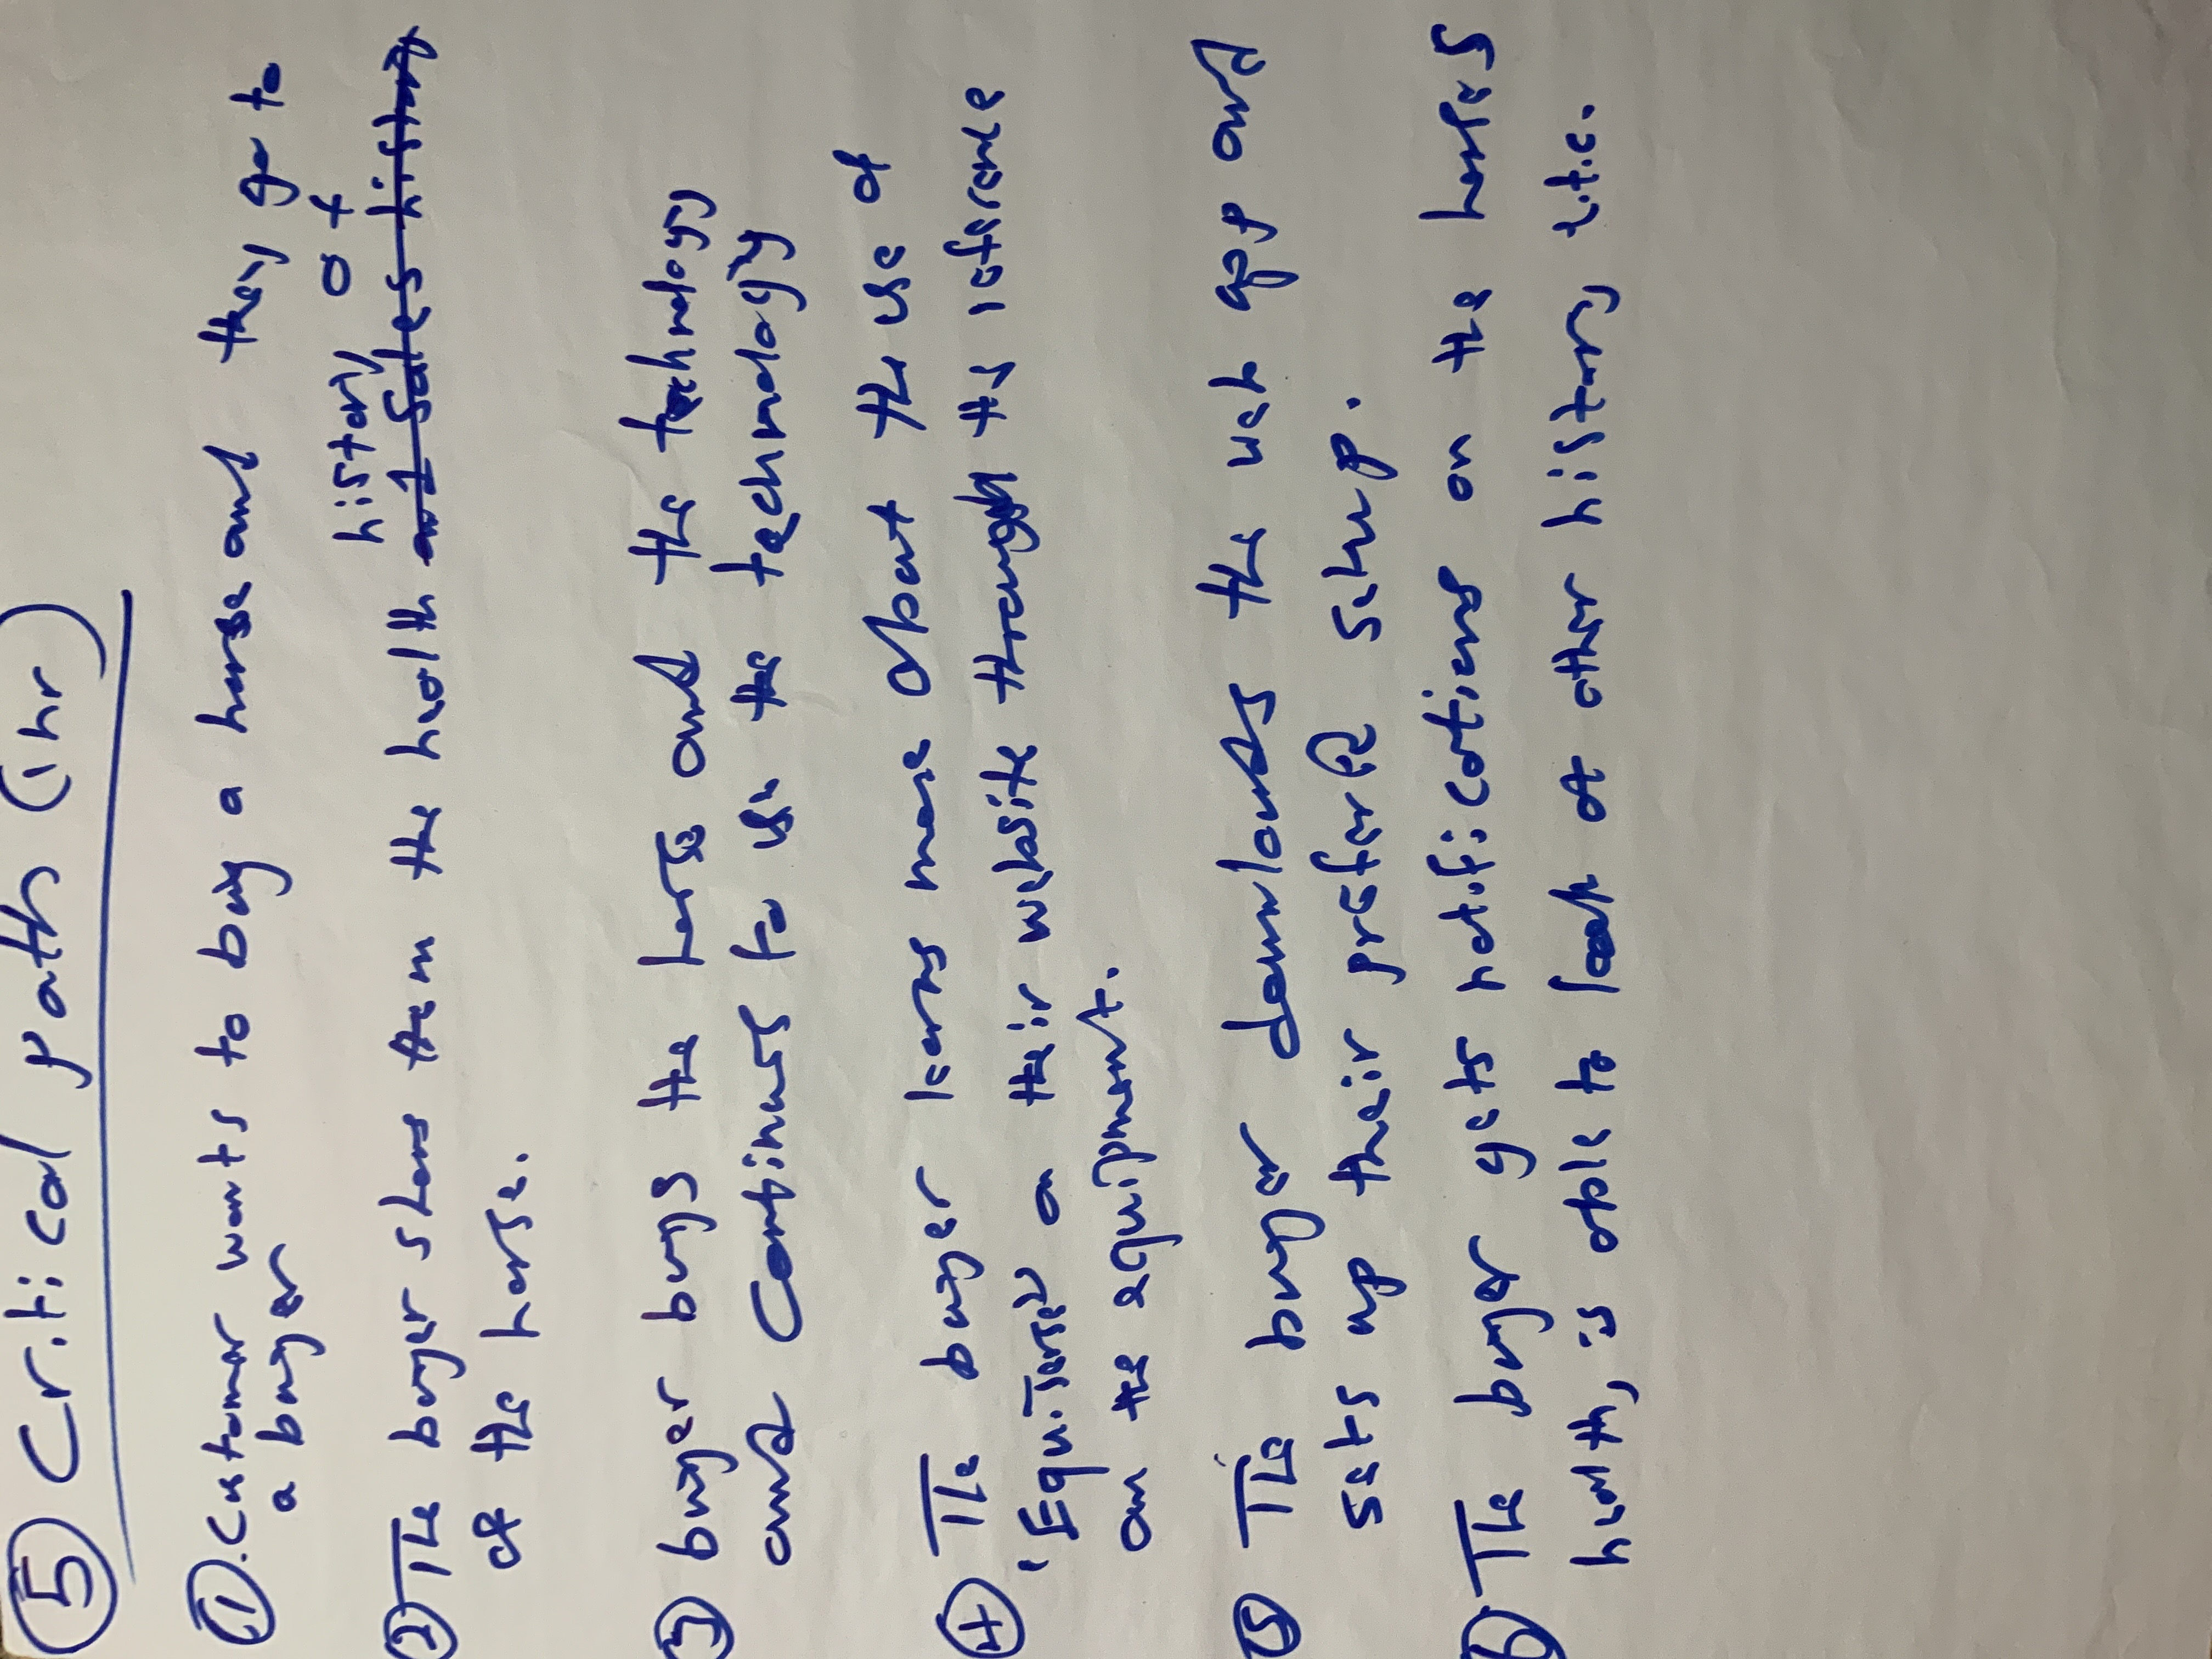 ⑤ Critical path (1hr)
①. Customer wants to buy a horse and they go to
a buyer
history of
② The buyer shows them the health and sales history
of the horse.
③ buyer buys the horse and the technology
and continues to use the technology
④ The buyer learns more about the use of
'Equi-Tones' on their website through its reference
on the equipment.
⑤ The buyer downloads the web app and
sets up their preferred setup.
⑥ The buyer gets notifications on the horses
health, is able to look at other history, e.t.c.